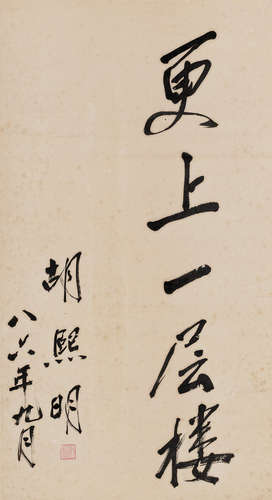 更上一层楼
胡熙明
八六年九月